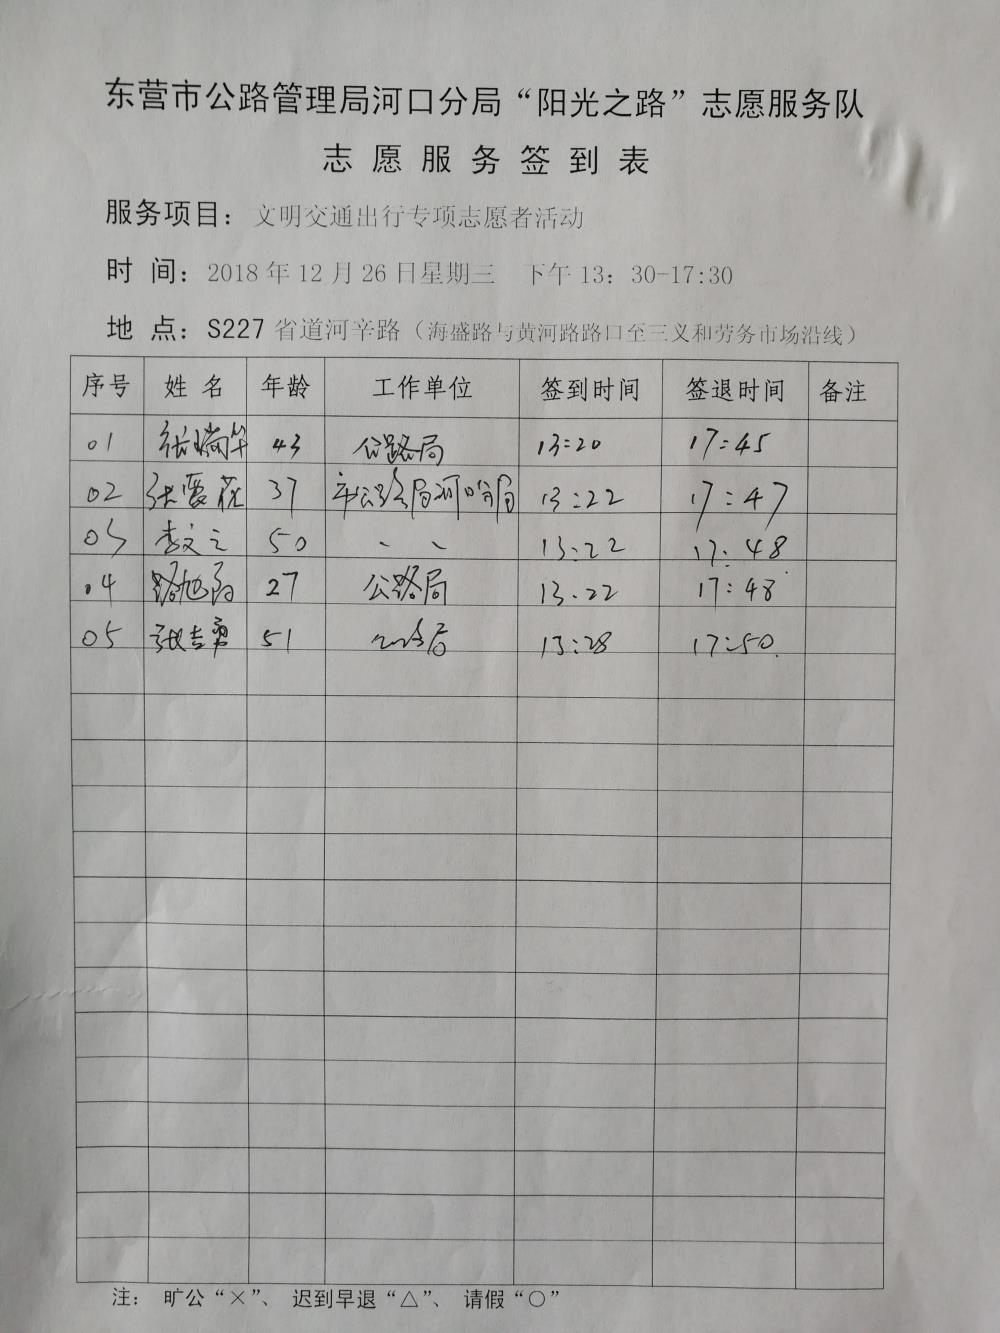 东营市公路管理局河口分局“阳光之路”志愿服务队
志愿服务签到表
服务项目：文明交通出行专项志愿者活动
时 间：2018年12月26日星期三 下午13：30-17:30
地 点：S227省道河辛路（海盛路与黄河路路口至三义和劳务市场沿线）
序号 姓名 年龄 工作单位 签到时间 签退时间 备注
01 张瑞华 43 公路局 13:20 17:45
02 张爱花 37 市公路局河口分局 13:22 17:47
03 李文之 50 、、 13:22 17:48
04 路旭阳 27 公路局 13:22 17:48
05 张吉勇 51 公路局 13:28 17:50
注： 旷公“×”、 迟到早退“△”、 请假“○”